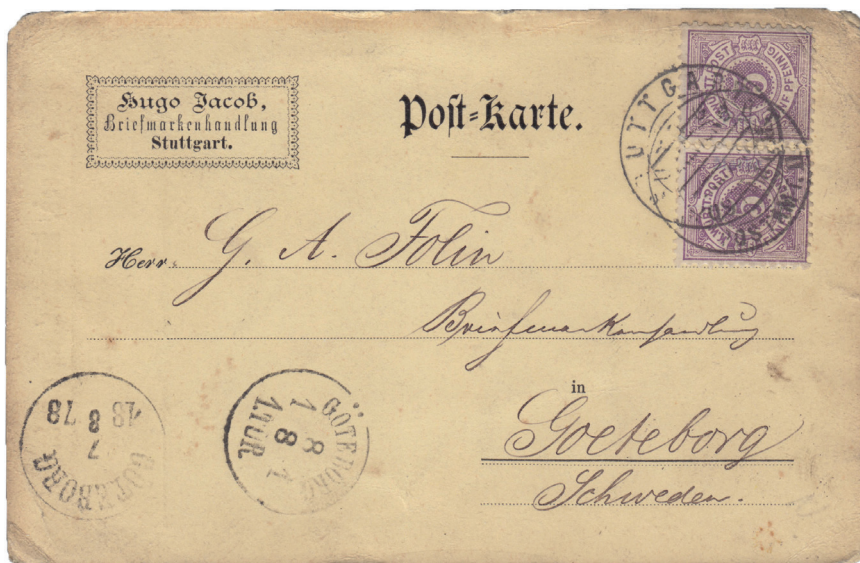 Hugo Jacob,
Briefmarkenhandlung
Stuttgart.
Post-Karte.
Herrn G. A. Folin
Briefmarkenhandlung
in
Goeteborg
Schweden.
GÖTEBORG
1 8
8 1
1.TUR
GÖTEBORG
18 8 78
7
STUTTGART